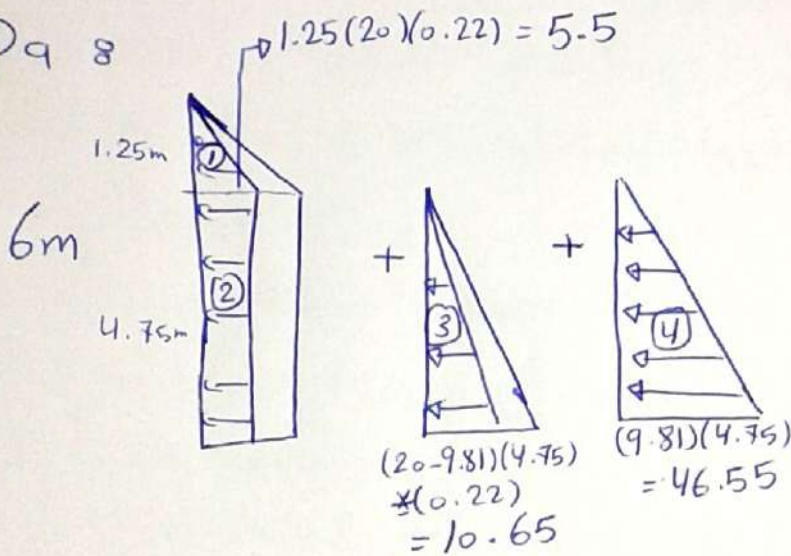 Qa 8
1.25(20)(0.22) = 5.5
1.25m
①
6m
②
4.75m
+
③
+
④
(20-9.81)(4.75)
*(0.22)
= 10.65
(9.81)(4.75)
= 46.55